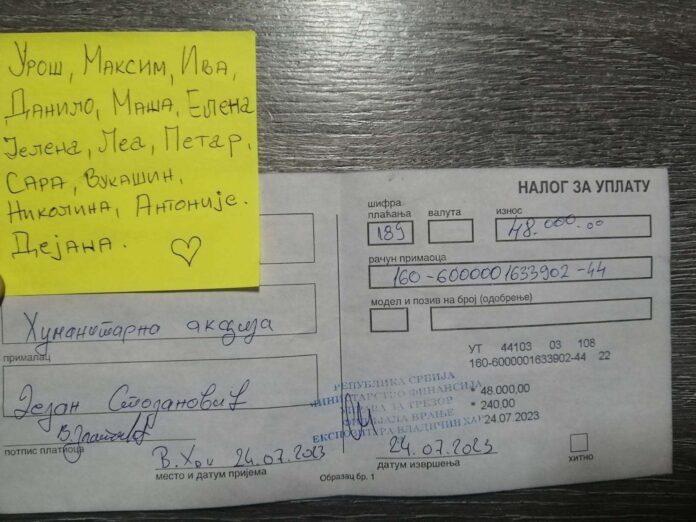 Урош, Максим, Ива,
Данило, Маша, Елена
Јелена, Леа, Петар,
Сара, Вукашин,
Николина, Антоније.
Дејана. ♡
НАЛОГ ЗА УПЛАТУ
шифра
плаћања
валута
износ
189
48.000.00
рачун примаоца
160-6000001633902-44
модел и позив на број (одобрење)
Хуманитарна акција
прималац
Дејан Стојановић
УТ 44103 03 108
160-6000001633902-44 22
* 48.000,00
* 240,00
24.07.2023
РЕПУБЛИКА СРБИЈА
МИНИСТАРСТВО ФИНАНСИЈА
УПРАВА ЗА ТРЕЗОР
ФИЛИЈАЛА ВРАЊЕ
ЕКСПОЗИТУРА ВЛАДИЧИН ХАН
потпис платиоца
В.Хан 24.07.2023
место и датум пријема
24.07.2023
датум извршења
хитно
Образац бр. 1